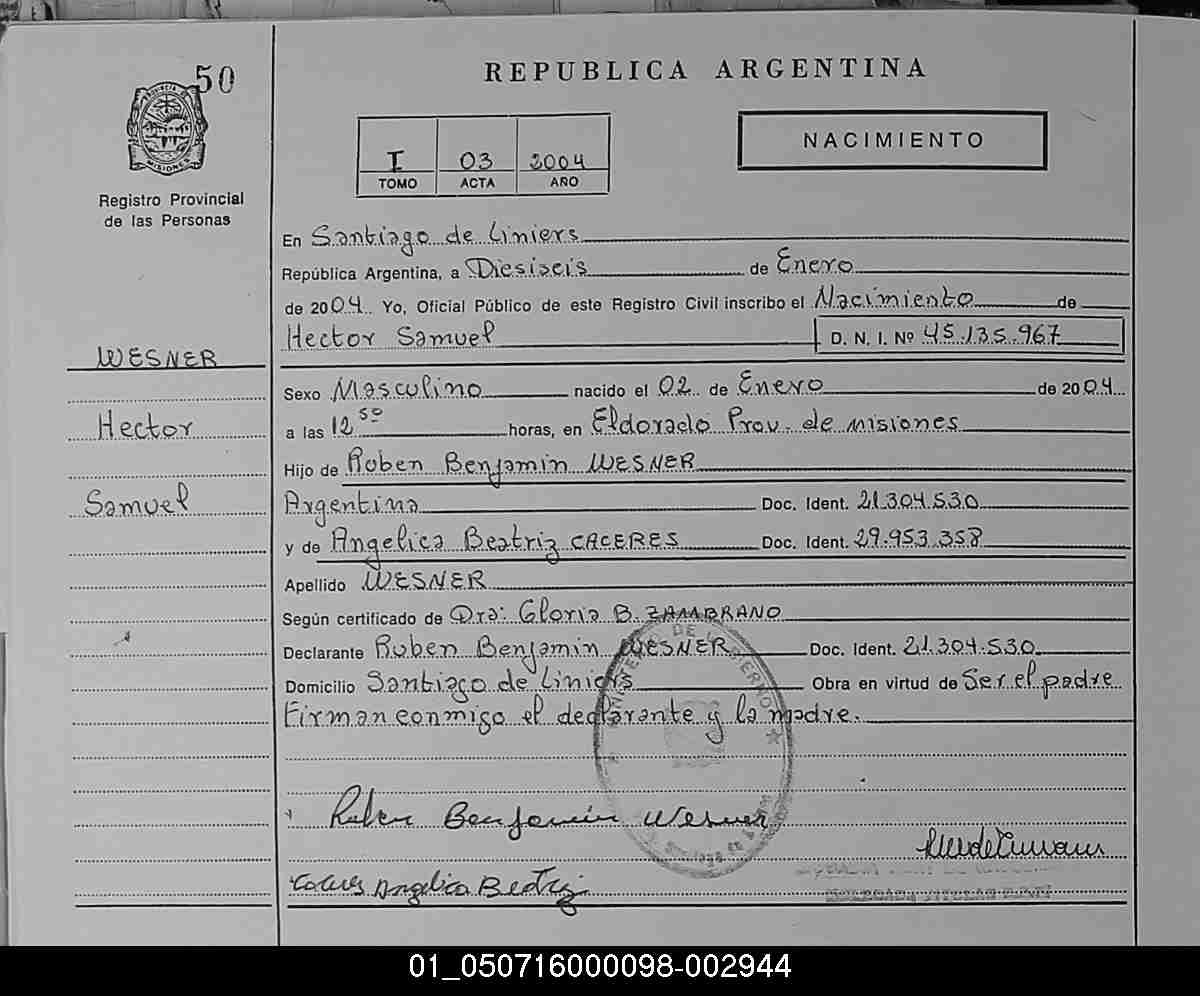 50
PROVINCIA DE
MISIONES
Registro Provincial
de las Personas
WESNER
Hector
Samuel
REPUBLICA ARGENTINA
I 03 2004
TOMO ACTA AÑO
NACIMIENTO
En Santiago de Liniers
República Argentina, a Diesiseis de Enero
de 2004. Yo, Oficial Público de este Registro Civil inscribo el Nacimiento de
Hector Samuel D. N. I. Nº 45.135.967
Sexo Masculino nacido el 02 de Enero de 2004
a las 12 50 horas, en Eldorado Prov. de Misiones
Hijo de Ruben Benjamin WESNER
Argentina Doc. Ident. 21.304.530
y de Angelica Beatriz CACERES Doc. Ident. 29.953.358
Apellido WESNER
Según certificado de Dra: Gloria B. ZAMBRANO
Declarante Ruben Benjamin WESNER Doc. Ident. 21.304.530
Domicilio Santiago de Liniers Obra en virtud de Ser el padre
Firman conmigo el declarante y la madre.
MINISTERIO DE GOBIERNO
Ruben Benjamin Wesner
Angelica Beatriz
01_050716000098-002944